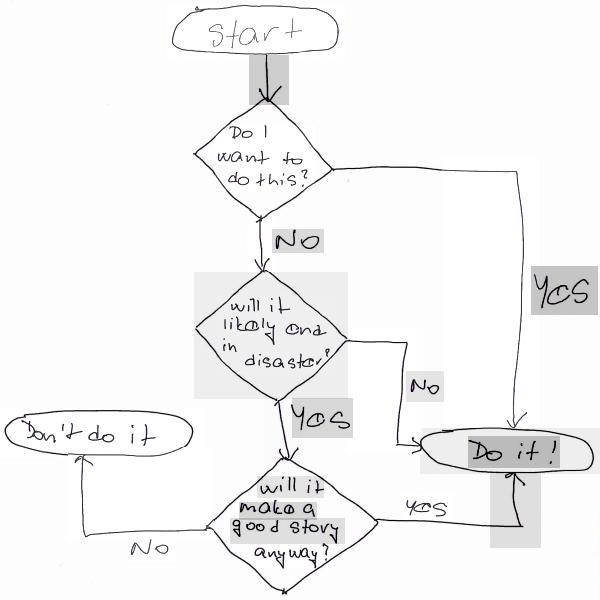 start
Do I
want to
do this?
NO
YES
will it
likely end
in disaster?
NO
YES
Don't do it
Do it!
will it
make a
good story
anyway?
YES
NO